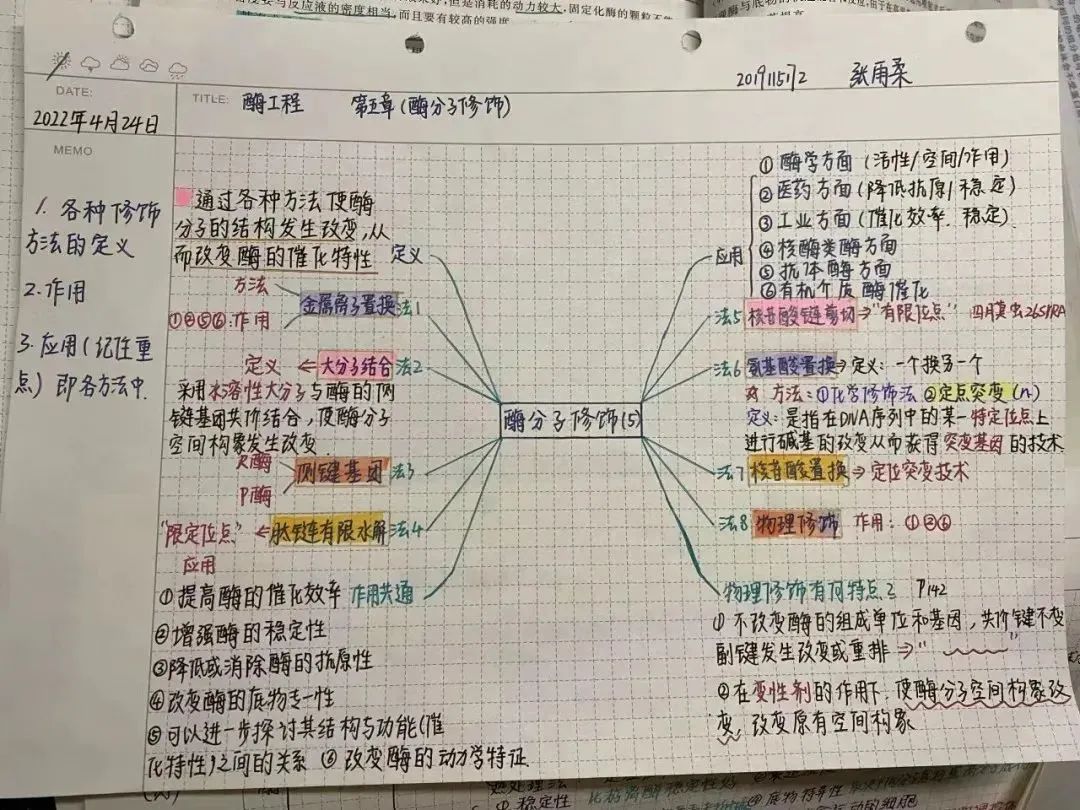 要与反应液的密度相当,而且要有较高的强度
但是消耗的动力较大,固定化酶的颗粒不
DATE:
2022年4月24日
TITLE: 酶工程 第五章(酶分子修饰)
2019115172 张雨柔
MEMO
1. 各种修饰
方法的定义
2. 作用
3. 应用(纪性重
点) 即各方法中
通过各种方法使酶
分子的结构发生改变,从
而改变酶的催化特性 定义
方法
金属离子置换 法1
①④⑤⑥:作用
定义 ⇐ 大分子结合 法2
采用水溶性大分子与酶的侧
键基团共价结合,使酶分子
空间构象发生改变
侧键基团 法3
P酶
"限定位点" ⇐ 肽链有限水解 法4
应用
作用共通
①提高酶的催化效率
②增强酶的稳定性
③降低或消除酶的抗原性
④改变酶的底物专一性
⑤可以进一步探讨其结构与功能(催
化特性)之间的关系 ⑥ 改变酶的动力学特征
酶分子修饰(5)
应用
① 酶学方面 (活性/空间/作用)
② 医药方面 (降低抗原/稳定)
③ 工业方面 (催化效率.稳定)
④ 核酶类酶方面
⑤ 抗体酶方面
⑥ 有机介质酶催化
法5 核苷酸链剪切 ⇒ "有限位点" 四膜虫26S rRNA
法6 氨基酸置换 ⇒ 定义: 一个换另一个
方法: ①化学修饰法 ②定点突变(n)
定义: 是指在DNA序列中的某一特定位点上
进行碱基的改变从而获得突变基因的技术
法7 核苷酸置换 ⇒ 定位突变技术
法8 物理修饰 作用: ①②⑥
物理修饰有何特点? P142
① 不改变酶的组成单位和基团,共价键不变
副键发生改变或重排 ⇒
② 在变性剂的作用下,使酶分子空间构象改
变,改变原有空间构象